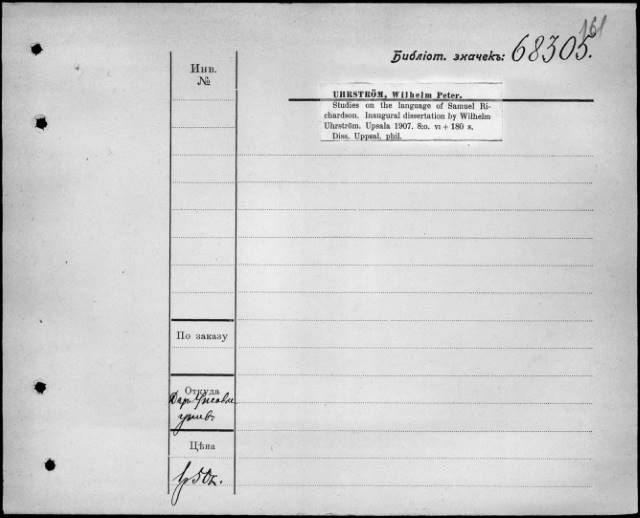 161
Библіот. значекъ: 68305.
Инв.
№
UHRSTRÖM, Wilhelm Peter.
Studies on the language of Samuel Ri-
chardson. Inaugural dissertation by Wilhelm
Uhrström. Upsala 1907. 8:o. VI + 180 s.
Diss. Uppsal. phil.
По заказу
Откуда
Дар.
унив.
Цѣна
50к.